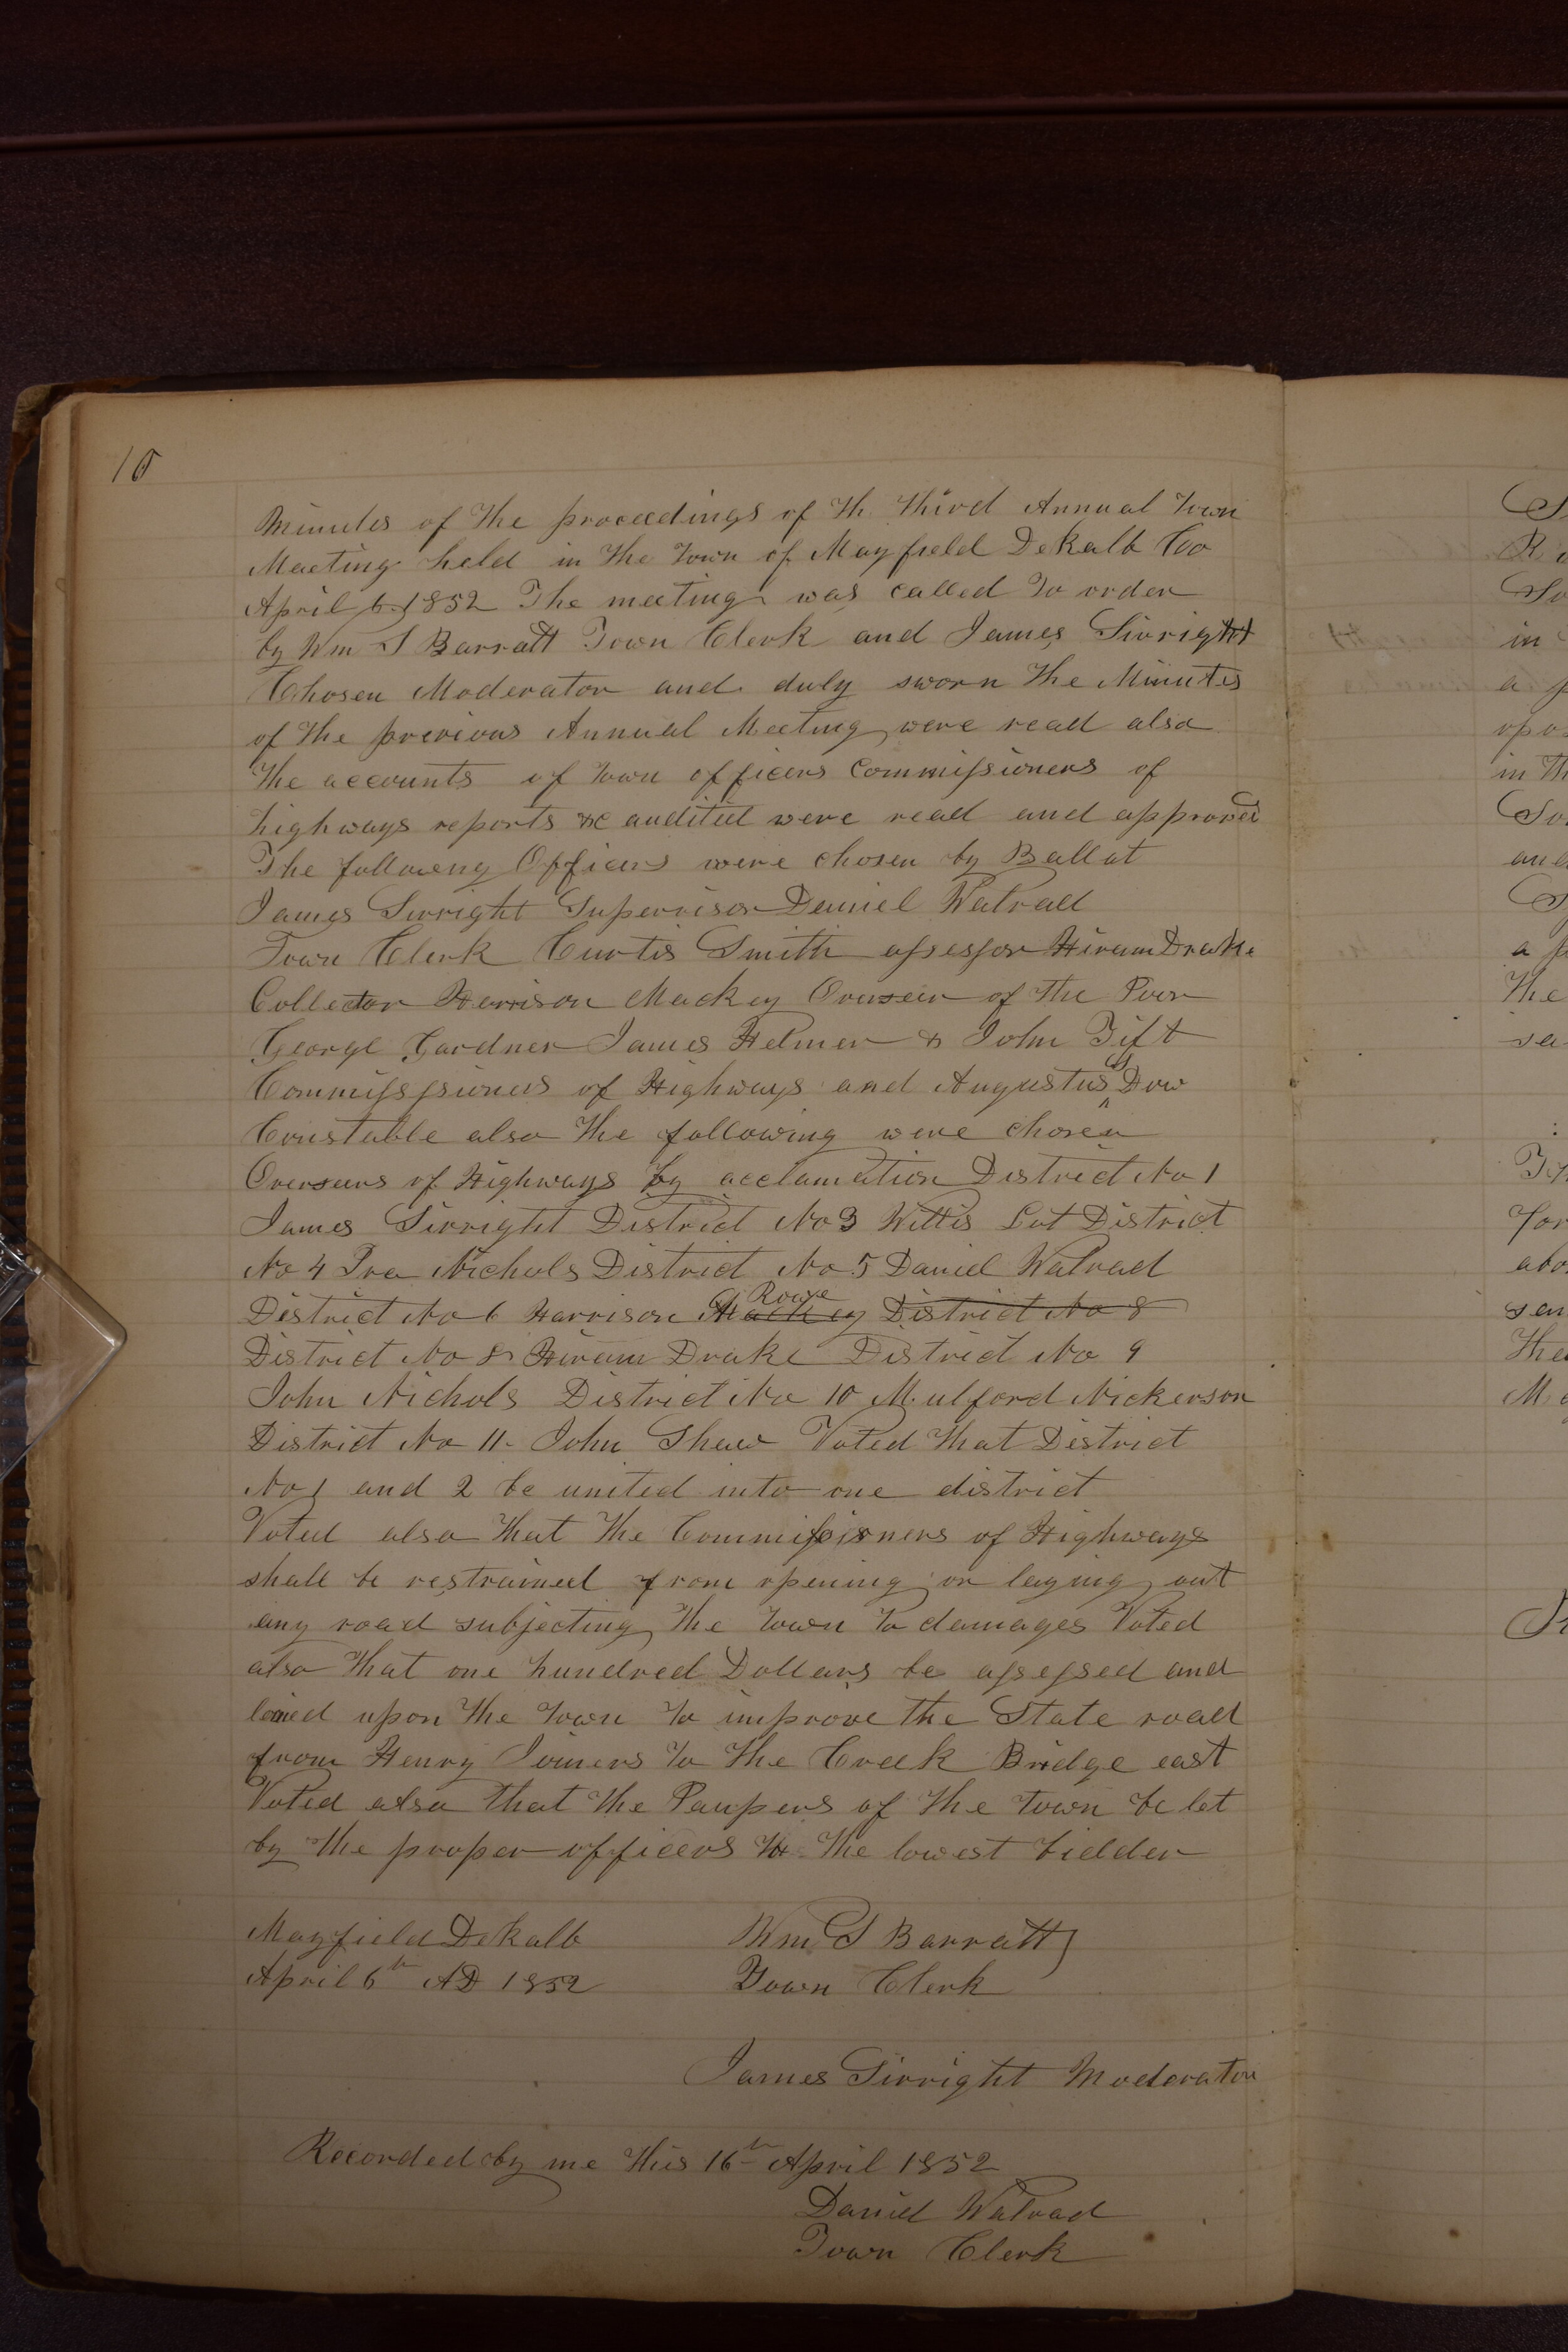 10
Minutes of the proceedings of th third Annual Town
Meeting held in the Town of Mayfield DeKalb Co
April 6 1852 The meeting was called to order
by Wm S Barratt Town Clerk and James Sivright
Chosen Moderator and duly sworn the Minutes
of the previous Annual Meeting were read also
the accounts of town officers Commissioners of
highways reports &c audited were read and approved
The following Officers were chosen by Ballot
James Sivright Supervisor Daniel Walrad
Town Clerk Curtis Smith assessor Hiram Drake
Collector Harrison Mackey Overseer of the Poor
George Gardner James Helmer & John Tift
Commisssioners of Highways and Augustus Dow
Constable also the following were chosen
Overseers of Highways by acclamation District No 1
James Sivright District No 3 Willis Lot District
No 4 Ira Nichols District No 5 Daniel Walrad
Rowe
District No 6 Harrison Mackey District No 8
District No 8 Hiram Drake District No 9
John Nichols District No 10 Mulford Nickerson
District No 11 John Shaw Voted that District
No 1 and 2 be united into one district
Voted also that the Commissioners of Highways
shall be restrained from opening or laying out
any road subjecting the town to damages Voted
also that one hundred Dollars be assessed and
upon the Town to improve the State road
from Henry Joiners to the Creek Bridge east
Voted also that the Paupers of the town be let
by the proper officers to the lowest bidder
Mayfield Dekalb Wm S Barratt
April 6th AD 1852 Town Clerk
James Sivright Moderator
Recorded by me this 16th April 1852
Daniel Walrad
Town Clerk